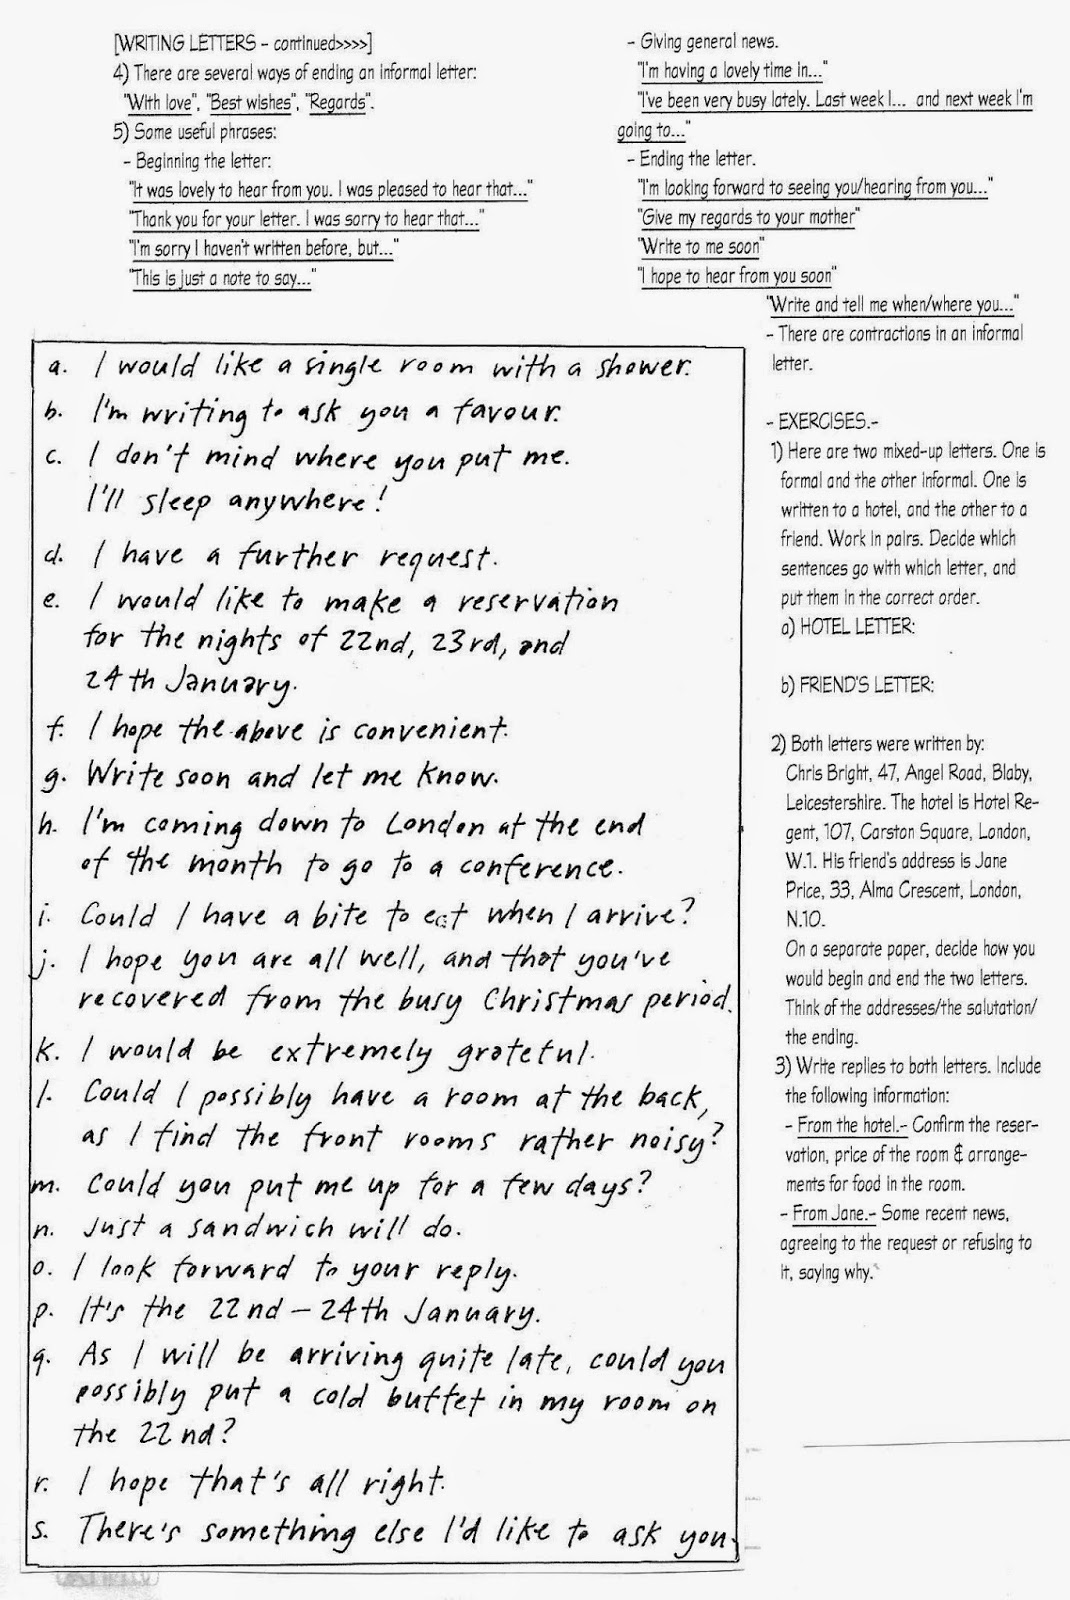 [WRITING LETTERS – continued>>>>]
4) There are several ways of ending an informal letter:
"With love", "Best wishes", "Regards".
5) Some useful phrases:
– Beginning the letter:
"It was lovely to hear from you. I was pleased to hear that..."
"Thank you for your letter. I was sorry to hear that..."
"I'm sorry I haven't written before, but..."
"This is just a note to say..."
– Giving general news.
"I'm having a lovely time in..."
"I've been very busy lately. Last week I... and next week I'm
going to..."
– Ending the letter.
"I'm looking forward to seeing you/hearing from you..."
"Give my regards to your mother"
"Write to me soon"
"I hope to hear from you soon"
"Write and tell me when/where you..."
– There are contractions in an informal
letter.
a. I would like a single room with a shower.
b. I'm writing to ask you a favour.
c. I don't mind where you put me.
I'll sleep anywhere!
d. I have a further request.
e. I would like to make a reservation
for the nights of 22nd, 23rd, and
24th January.
f. I hope the above is convenient.
g. Write soon and let me know.
h. I'm coming down to London at the end
of the month to go to a conference.
i. Could I have a bite to eat when I arrive?
j. I hope you are all well, and that you've
recovered from the busy Christmas period.
k. I would be extremely grateful.
l. Could I possibly have a room at the back,
as I find the front rooms rather noisy?
m. Could you put me up for a few days?
n. Just a sandwich will do.
o. I look forward to your reply.
p. It's the 22nd – 24th January.
q. As I will be arriving quite late, could you
possibly put a cold buffet in my room on
the 22nd?
r. I hope that's all right.
s. There's something else I'd like to ask you.
– EXERCISES.–
1) Here are two mixed-up letters. One is
formal and the other informal. One is
written to a hotel, and the other to a
friend. Work in pairs. Decide which
sentences go with which letter, and
put them in the correct order.
a) HOTEL LETTER:
b) FRIEND'S LETTER:
2) Both letters were written by:
Chris Bright, 47, Angel Road, Blaby,
Leicestershire. The hotel is Hotel Re-
gent, 107, Carston Square, London,
W.1. His friend's address is Jane
Price, 33, Alma Crescent, London,
N.10.
On a separate paper, decide how you
would begin and end the two letters.
Think of the addresses/the salutation/
the ending.
3) Write replies to both letters. Include
the following information:
– From the hotel.– Confirm the reser-
vation, price of the room & arrange-
ments for food in the room.
– From Jane.– Some recent news,
agreeing to the request or refusing to
it, saying why.